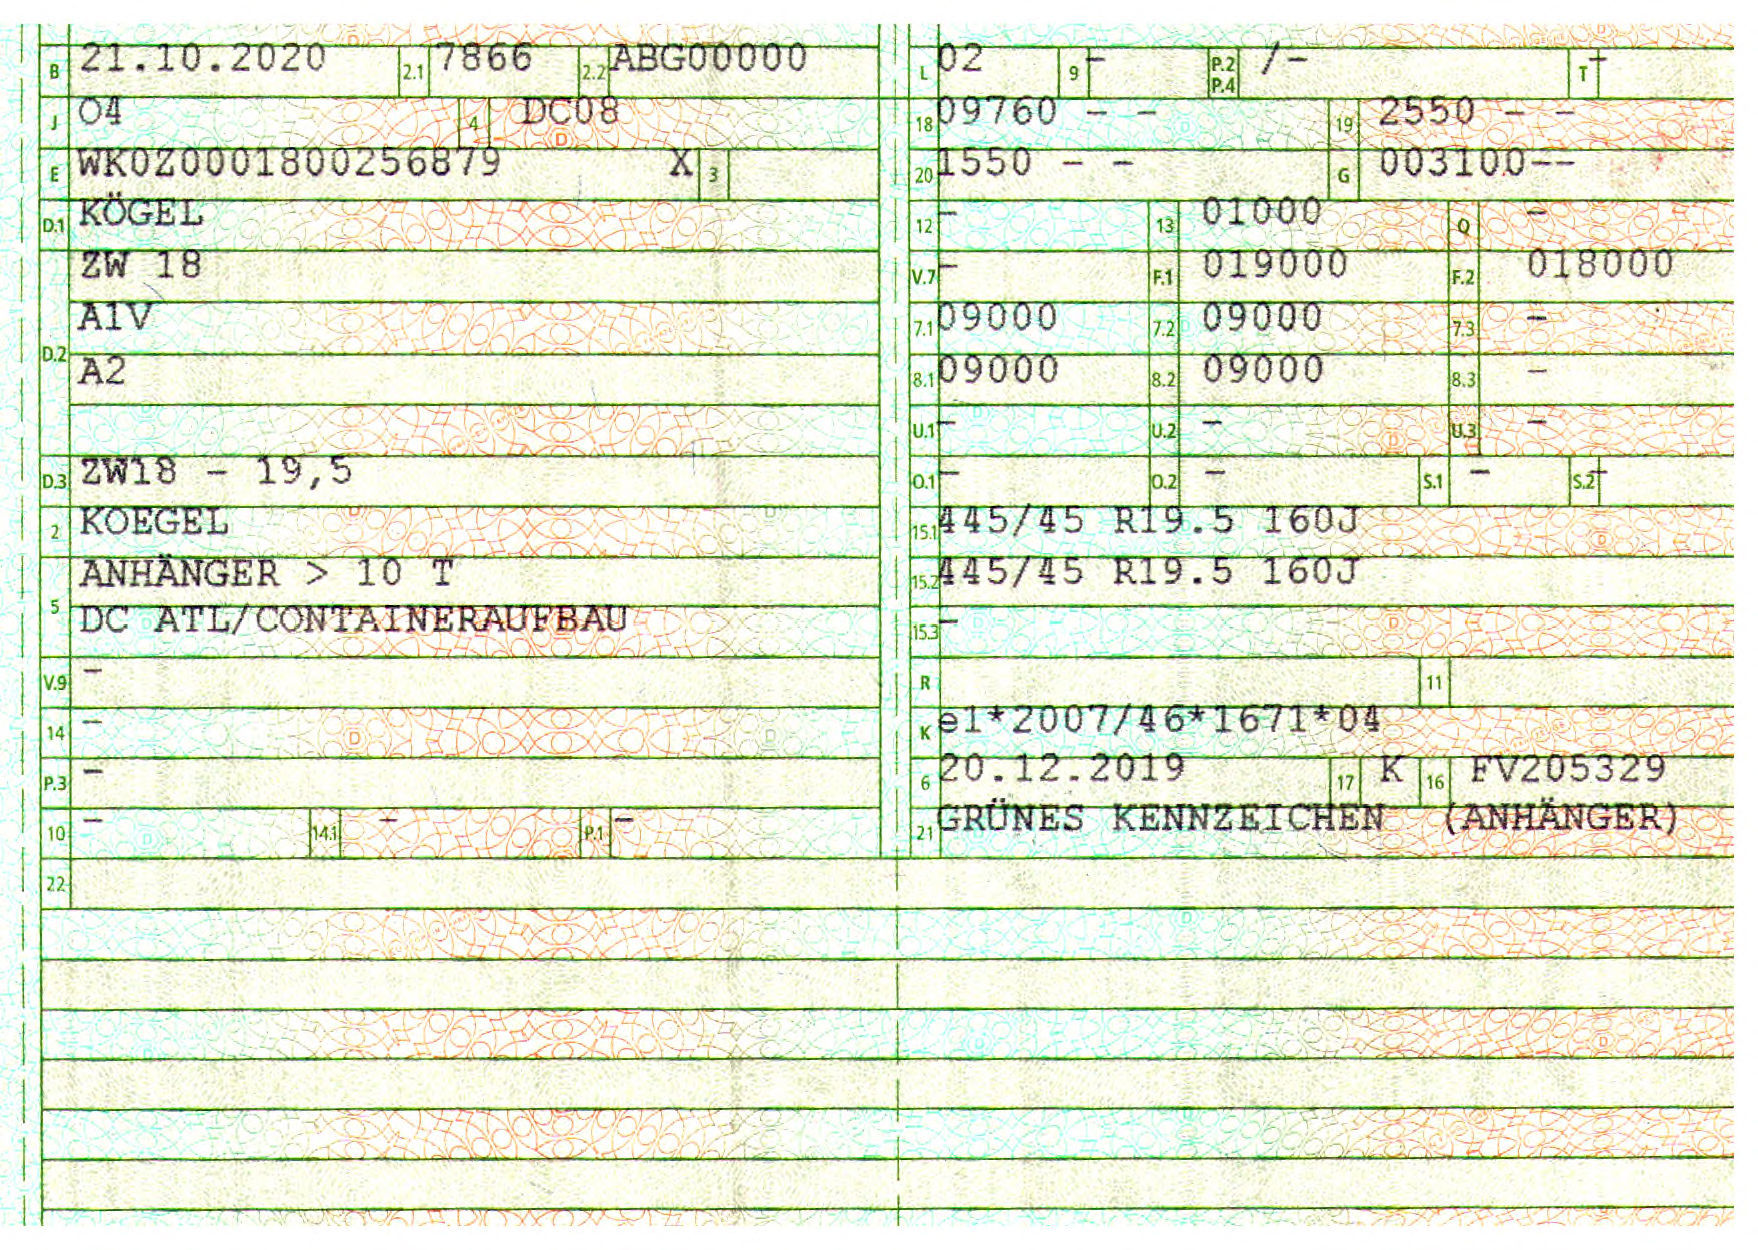 B 21.10.2020 2.1 7866 2.2 ABG00000
J 04 4 DC08
E WK0Z0001800256879 X 3
D.1 KÖGEL
ZW 18
A1V
D.2
A2
D.3 ZW18 - 19,5
2 KOEGEL
ANHÄNGER > 10 T
5
DC ATL/CONTAINERAUFBAU
V.9 -
14 -
P.3 -
10 - 14.1 - P.1 -
22
L 02 9 - P.2 P.4 /- T -
18 09760 - - 19 2550 - -
20 1550 - - G 003100--
12 - 13 01000 Q -
V.7 - F.1 019000 F.2 018000
7.1 09000 7.2 09000 7.3 -
8.1 09000 8.2 09000 8.3 -
U.1 - U.2 - U.3 -
O.1 - O.2 - S.1 - S.2 -
15.1 445/45 R19.5 160J
15.2 445/45 R19.5 160J
15.3 -
R 11
K e1*2007/46*1671*04
6 20.12.2019 17 K 16 FV205329
21 GRÜNES KENNZEICHEN (ANHÄNGER)